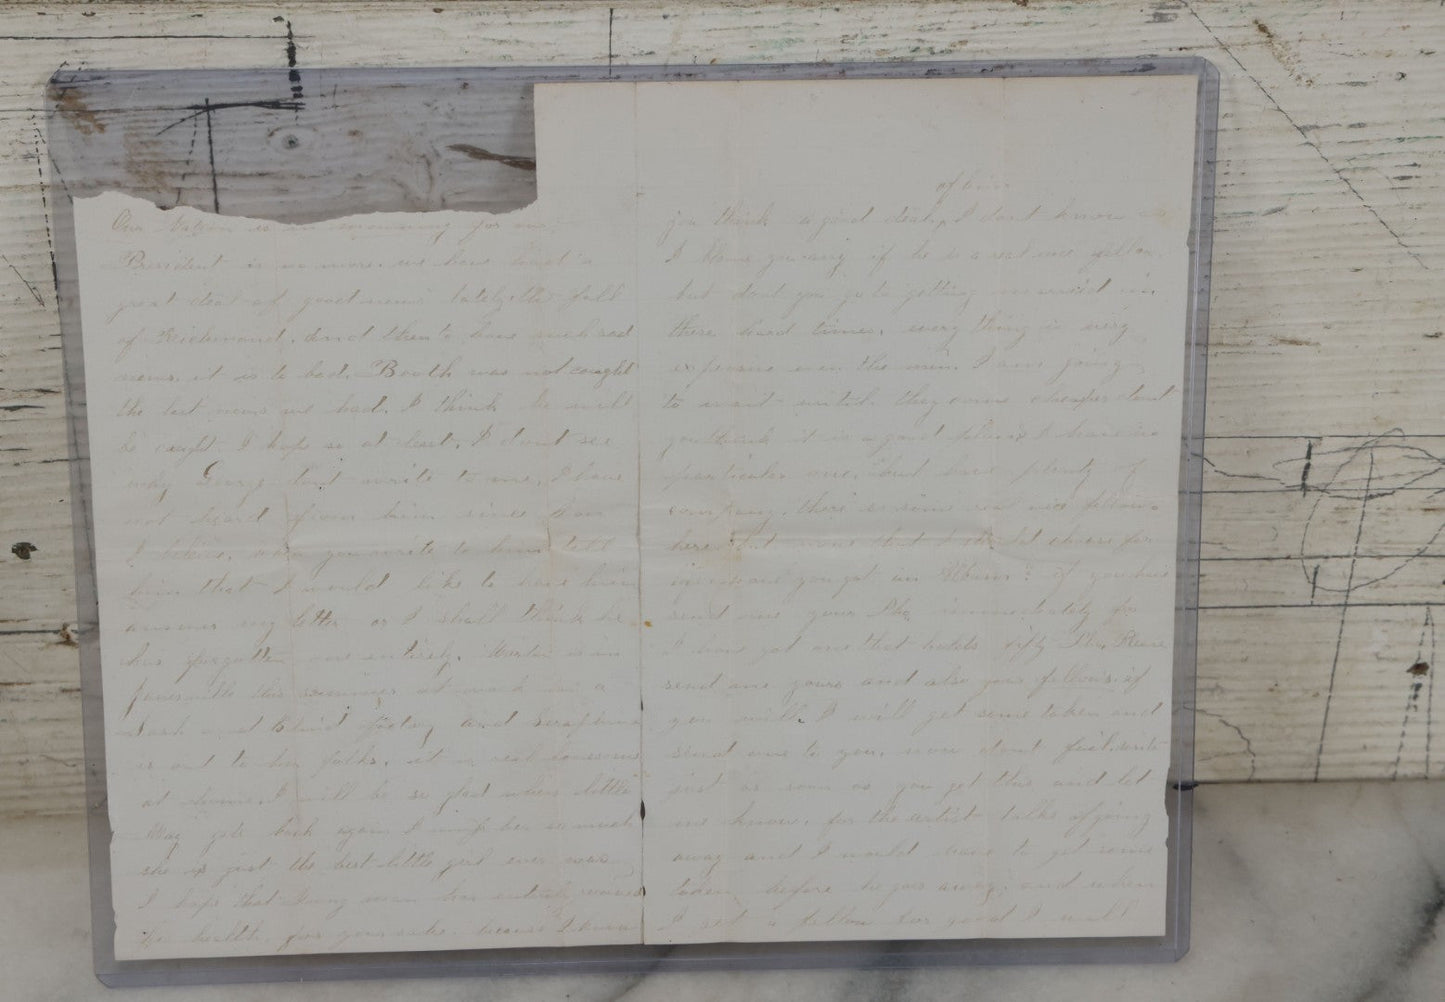 Our Nation is in mourning for our
President is no more. we have had a
great deal of good news lately the fall
of Richmond. And then to have such sad
news. it is to bad. Booth was not caught
the last news we had. I think he will
be caught I hope so at least. I dont see
why George dont write to me, I have
not heard from him since
I believe. when you write to him tell
him that I would like to have him
answer my letter or I shall think he
has forgotten me entirely. is in
Janesville this summer at work in a
Sash and Blind factory and
is out to her folks. it is real lonesome
at home. I will be so glad when little
May gets back again I miss her so much
she is just the best little girl ever was
I hope that young man has entirely
his health. for your sake. because I know
of him
you think a good deal, I dont know as
I blame you any if he is a real nice fellow.
but dont you go to getting married in
these hard times. every thing is very
expensive even the men. I am going
to wait until they come cheaper dont
you think it is a good plan? I have no
particular one. but have plenty of
company. there is some real nice fellows
here. but none that I should choose for
have you got an Album? if you have
send me your Pho. immediately for
I have got one that holds fifty Pho. Please
send me yours and also your fellows. if
you will. I will get some taken and
send one to you. now dont fail. write
just as soon as you get this and let
me know. for the artist talks of going
away and I would have to get some
taken before he goes away. and when
I get a fellow for good I will